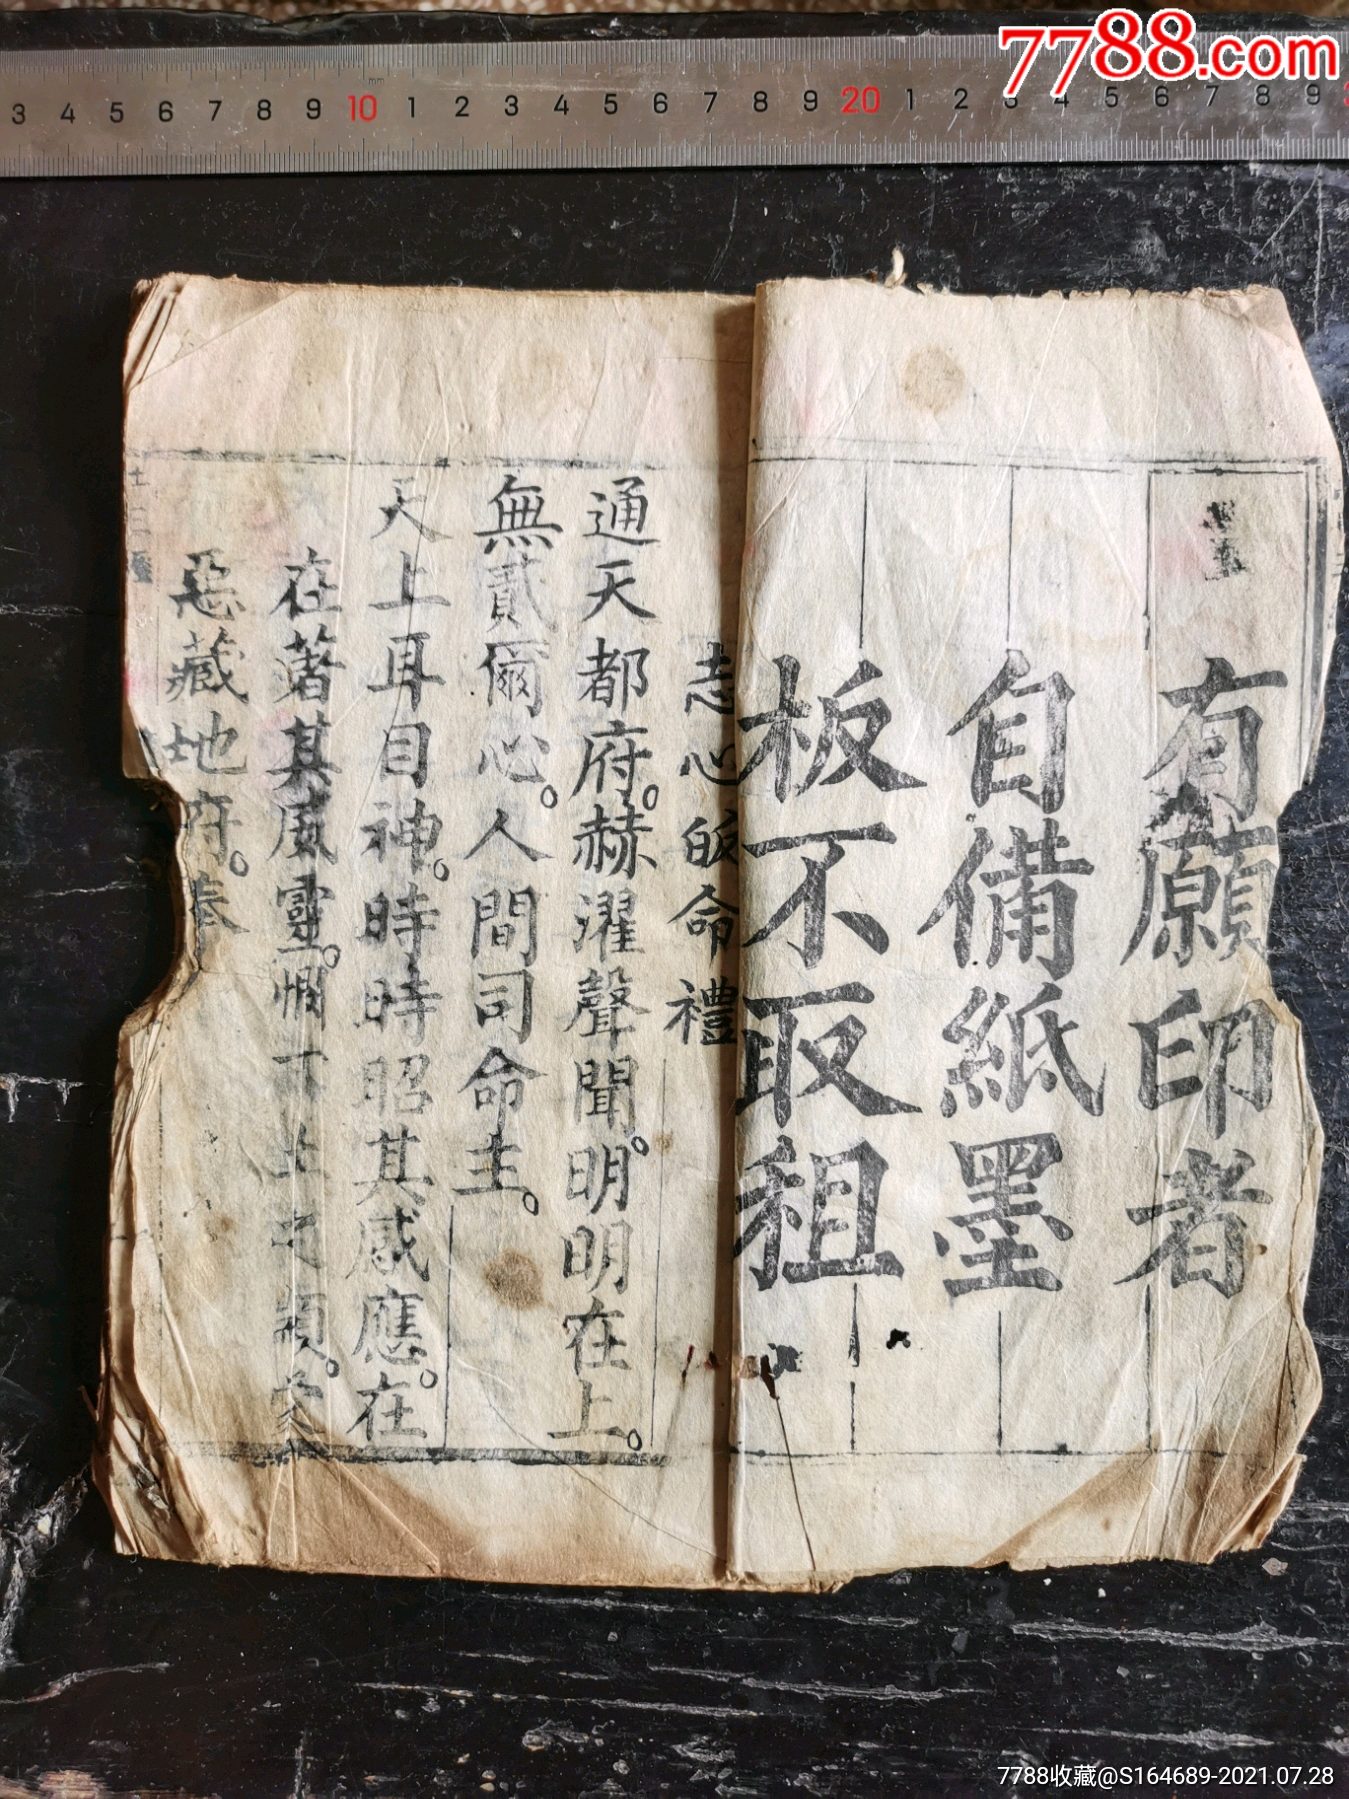 7788.com
3 4 5 6 7 8 9 10 1 2 3 4 5 6 7 8 9 20 1 2 3 4 5 6 7 8 9
mm
有願印者
自備紙墨
板不取租
志心皈命禮
通天都府。赫濯聲聞。明明在上。
無貳爾心。人間司命主。
天上耳目神。時時昭其感應。在
在著其威靈。憫下土之
惡藏地府。奏
十三
7788收藏@S164689-2021.07.28